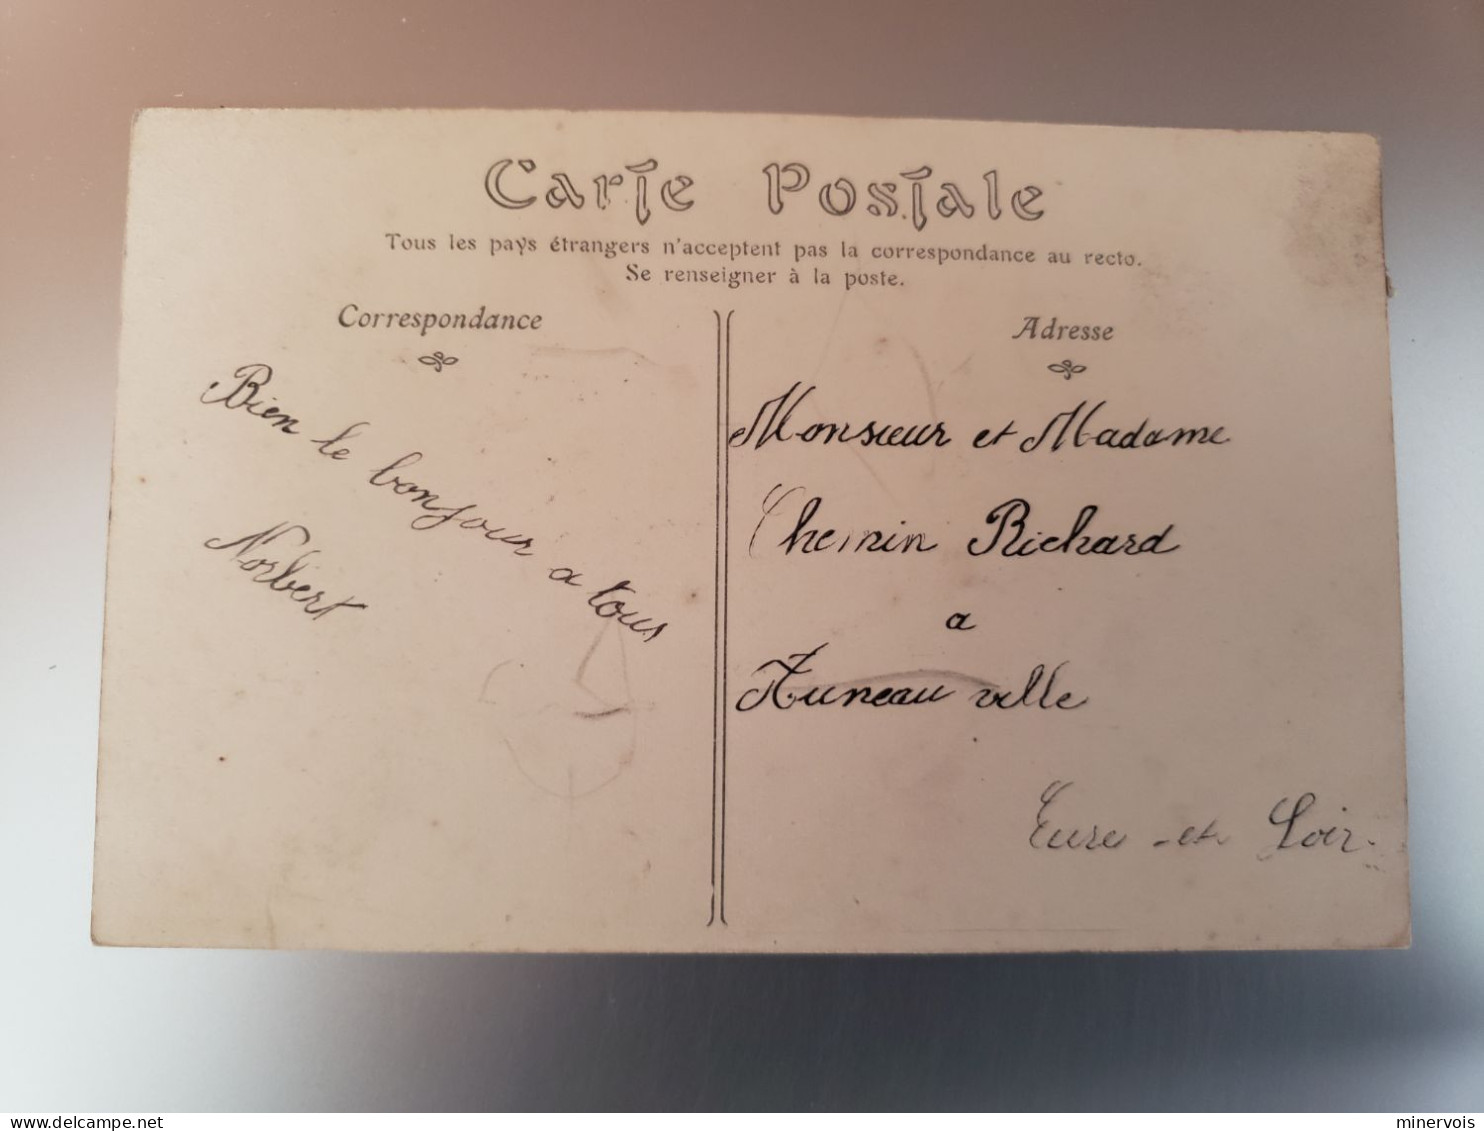 Carte Postale
Tous les pays étrangers n'acceptent pas la correspondance au recto.
Se renseigner à la poste.
Correspondance
Bien le bonjour a tous
Norbert
Adresse
Monsieur et Madame
Chemin Richard
a
Auneau ville
Eure-et Loir.
minervois